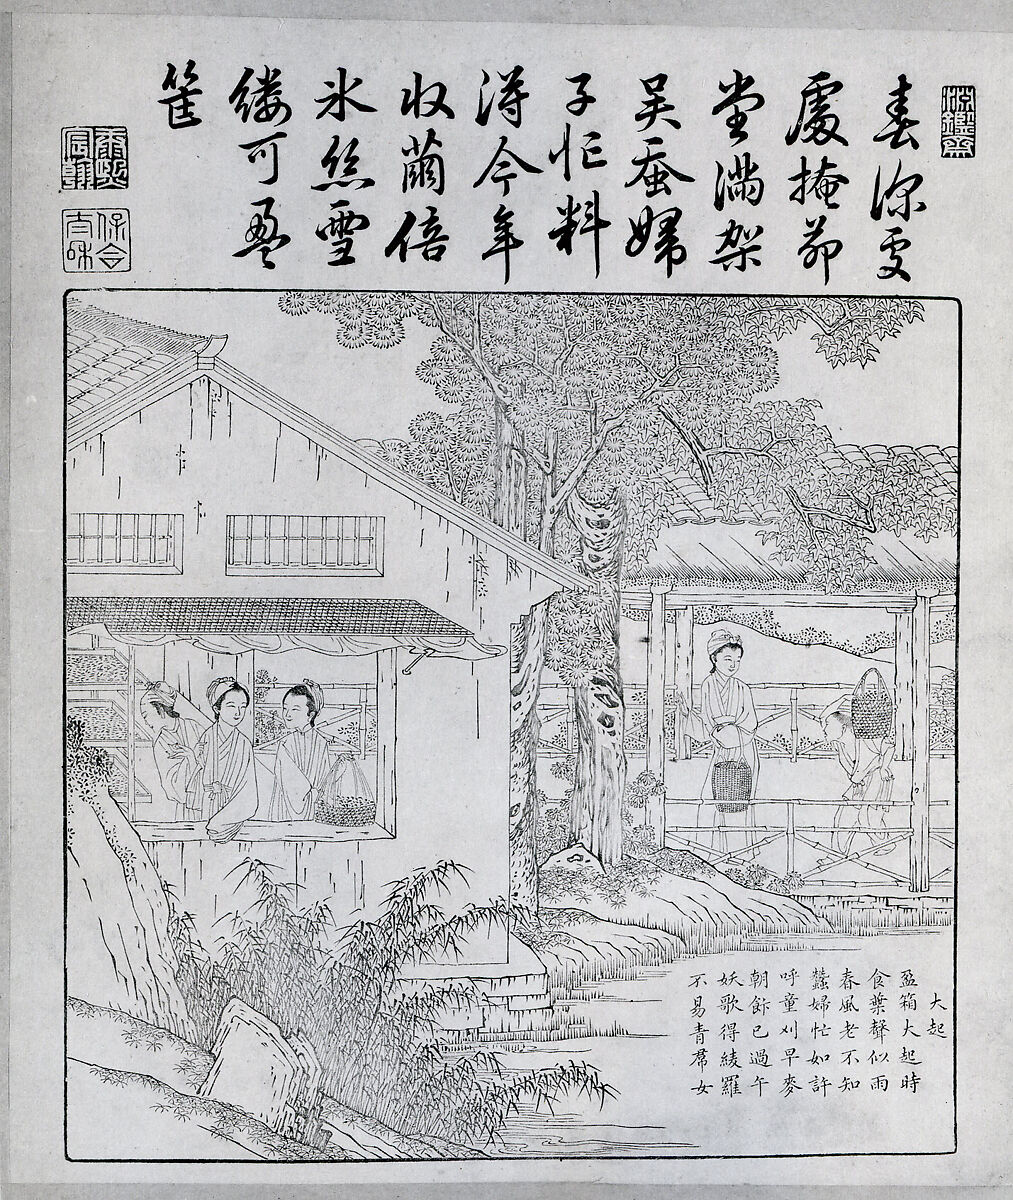 淵鑒齋
春深處
處掩茆
堂滿架
吳蚕婦
子忙料
得今年
收繭倍
冰絲雪
縷可盈
筐
康熙宸翰
保合太和
大起
盈箱大起時
食葉聲似雨
春風老不知
蠶婦忙如許
呼童刈早麥
朝飰已過午
妖歌得綾羅
不易青帬女